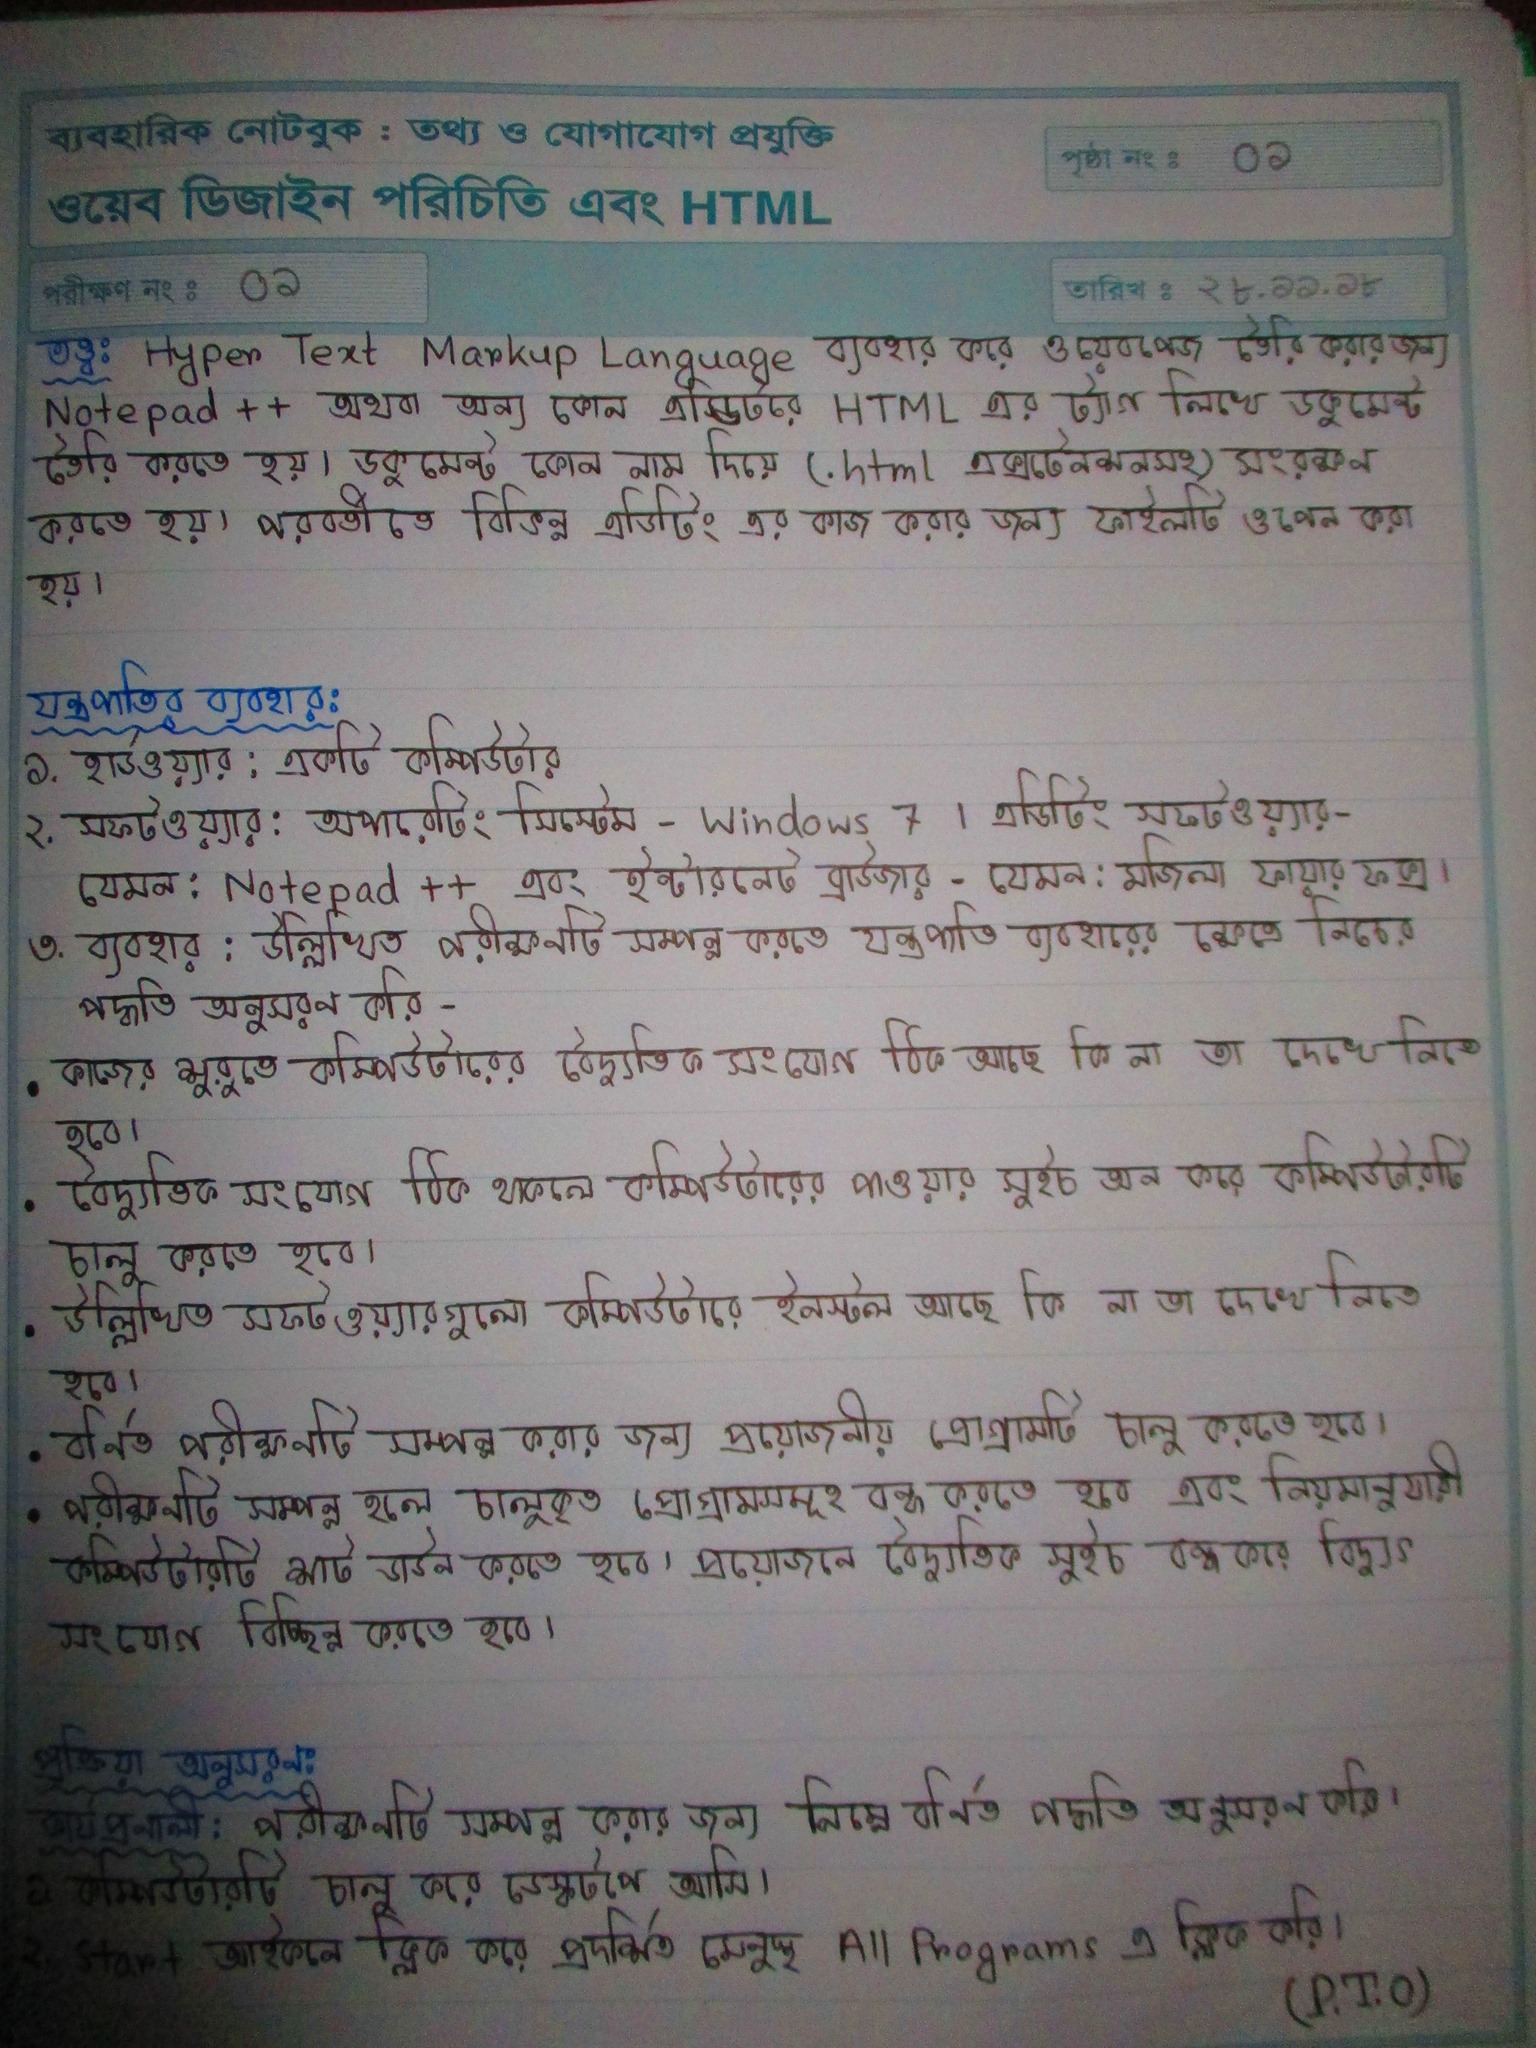 ব্যবহারিক নোটবুক : তথ্য ও যোগাযোগ প্রযুক্তি
পৃষ্ঠা নং : ০১
ওয়েব ডিজাইন পরিচিতি এবং HTML
পরীক্ষণ নং : ০১
তারিখ : ২৮.১১.১৮
তত্ত্ব: Hyper Text Markup Language ব্যবহার করে ওয়েবপেজ তৈরি করার জন্য
Notepad ++ অথবা অন্য কোন এডিটরে HTML এর ট্যাগ লিখে ডকুমেন্ট
তৈরি করতে হয়। ডকুমেন্ট কোন নাম দিয়ে (.html এক্সটেনশনসহ) সংরক্ষন
করতে হয়। পরবর্তীতে বিভিন্ন এডিটিং এর কাজ করার জন্য ফাইলটি ওপেন করা
হয়।
যন্ত্রপাতির ব্যবহার:
১. হার্ডওয়্যার : একটি কম্পিউটার
২. সফটওয়্যার : অপারেটিং সিস্টেম - Windows 7 । এডিটিং সফটওয়্যার-
যেমন : Notepad ++ এবং ইন্টারনেট ব্রাউজার - যেমন : মজিলা ফায়ার ফক্স।
৩. ব্যবহার : উল্লিখিত পরীক্ষনটি সম্পন্ন করতে যন্ত্রপাতি ব্যবহারের ক্ষেত্রে নিচের
পদ্ধতি অনুসরন করি -
• কাজের শুরুতে কম্পিউটারের বৈদ্যুতিক সংযোগ ঠিক আছে কি না তা দেখে নিতে
হবে।
• বৈদ্যুতিক সংযোগ ঠিক থাকলে কম্পিউটারের পাওয়ার সুইচ অন করে কম্পিউটারটি
চালু করতে হবে।
• উল্লিখিত সফটওয়্যারগুলো কম্পিউটারে ইনস্টল আছে কি না তা দেখে নিতে
হবে।
• বর্নিত পরীক্ষনটি সম্পন্ন করার জন্য প্রয়োজনীয় প্রোগ্রামটি চালু করতে হবে।
• পরীক্ষনটি সম্পন্ন হলে চালুকৃত প্রোগ্রামসমূহ বন্ধ করতে হবে এবং নিয়মানুযায়ী
কম্পিউটারটি শাট ডাউন করতে হবে। প্রয়োজনে বৈদ্যুতিক সুইচ বন্ধ করে বিদ্যুৎ
সংযোগ বিচ্ছিন্ন করতে হবে।
প্রক্রিয়া অনুসরন:
কার্যপ্রনালী : পরীক্ষনটি সম্পন্ন করার জন্য নিম্নে বর্নিত পদ্ধতি অনুসরন করি।
১. কম্পিউটারটি চালু করে ডেস্কটপে আসি।
২. Start আইকনে ক্লিক করে প্রদর্শিত মেনুস্থ All Programs এ ক্লিক করি।
(P.T.O)